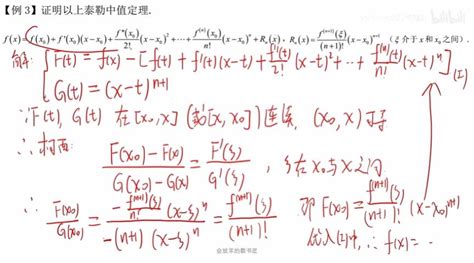 【例3】证明以上泰勒中值定理.
f(x)=f(x₀)+f'(x₀)(x-x₀)+f''(x₀)/2!(x-x₀)²+⋯+f⁽ⁿ⁾(x₀)/n!(x-x₀)ⁿ+Rₙ(x), Rₙ(x)=f⁽ⁿ⁺¹⁾(ξ)/(n+1)!(x-x₀)ⁿ⁺¹ (ξ介于x和x₀之间).
解: { F(t)=f(x)-[f(t)+f'(t)(x-t)+f''(t)/2!(x-t)²+⋯+f⁽ⁿ⁾(t)/n!(x-t)ⁿ] (1)
G(t)=(x-t)ⁿ⁺¹
∵F(t), G(t) 在[x₀,x](或[x,x₀])连续, (x₀,x)可导
∴柯西: F(x₀)-F(x)/G(x₀)-G(x)=F'(ξ)/G'(ξ), ξ在x₀与x之间
∴ F(x₀)/G(x₀)=-f⁽ⁿ⁺¹⁾(ξ)/n!(x-ξ)ⁿ/-(n+1)(x-ξ)ⁿ=f⁽ⁿ⁺¹⁾(ξ)/(n+1)! 即F(x₀)=f⁽ⁿ⁺¹⁾(ξ)/(n+1)!(x-x₀)ⁿ⁺¹
代入(1)中, ∴f(x)=⋯